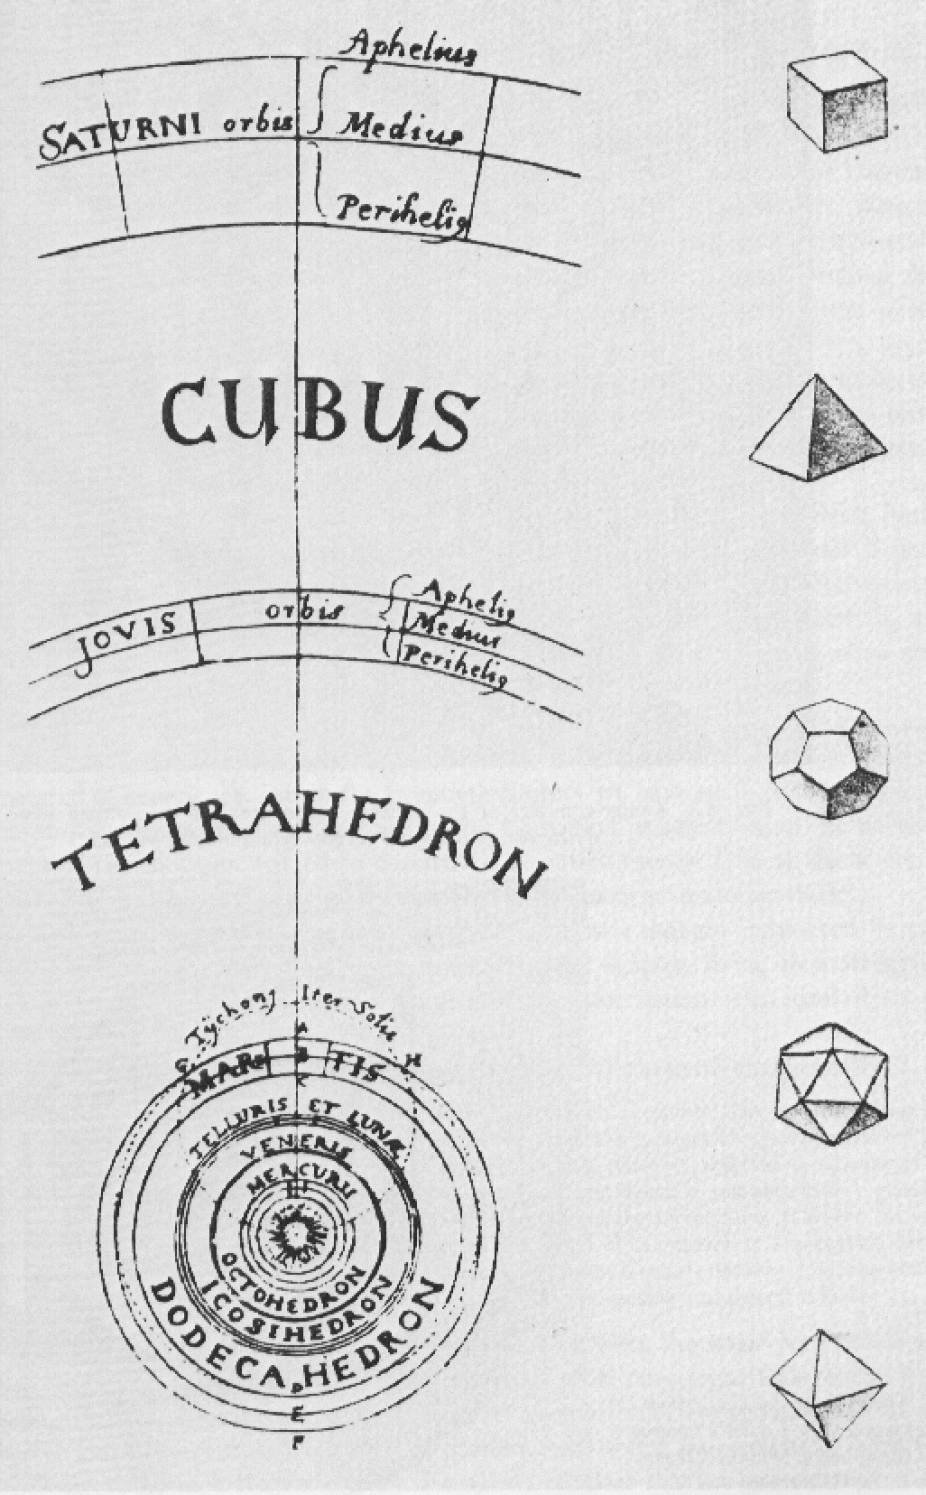 Aphelius
SATURNI orbis
Medius
Periheliꝯ
CUBUS
JOVIS
orbis
Apheliꝯ
Medius
Periheliꝯ
TETRAHEDRON
Iter Solis
A
G
H
MAR B TIS
C
TELLURIS ET LUNÆ
VENERIS
MERCURII
OCTOHEDRON
ICOSIHEDRON
DODECAHEDRON
D
E
F